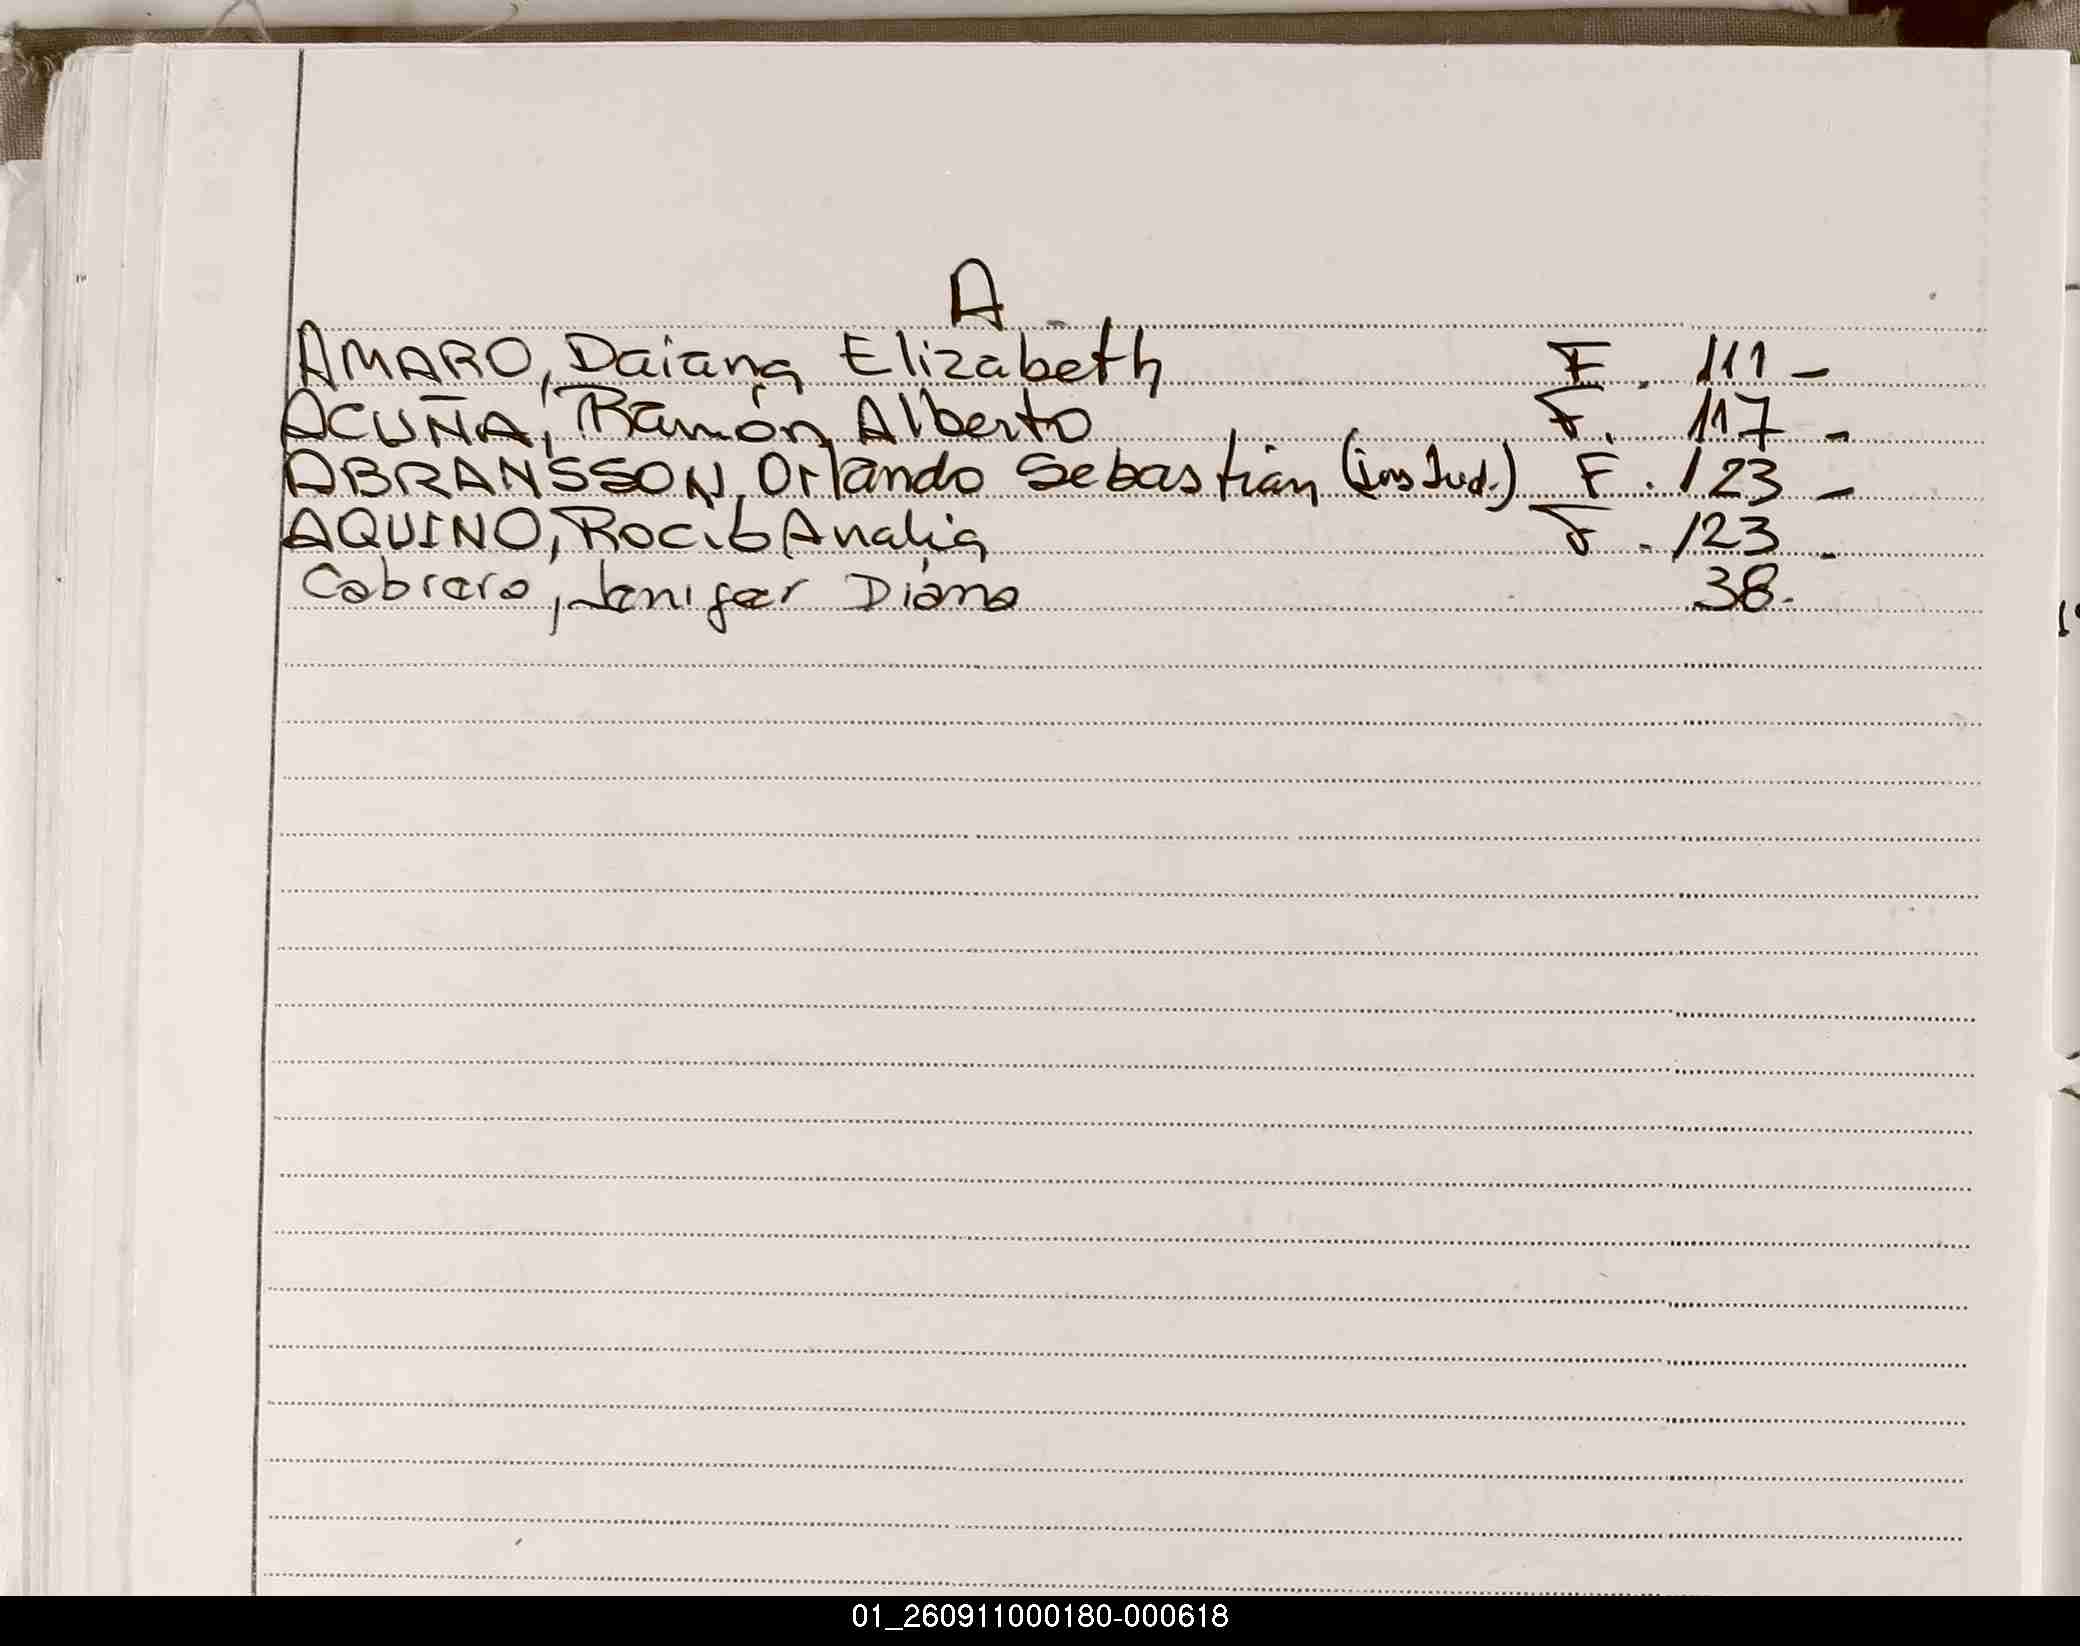 A
AMARO, Daiana Elizabeth F. 111 -
ACUÑA, Ramón Alberto F. 117 -
ABRANSSON, Orlando Sebastián (ins Jud.) F. 123 -
AQUINO, Rocío Analia F. 123 -
Cabrera, Jenifer Diana 38.-
01_260911000180-000618